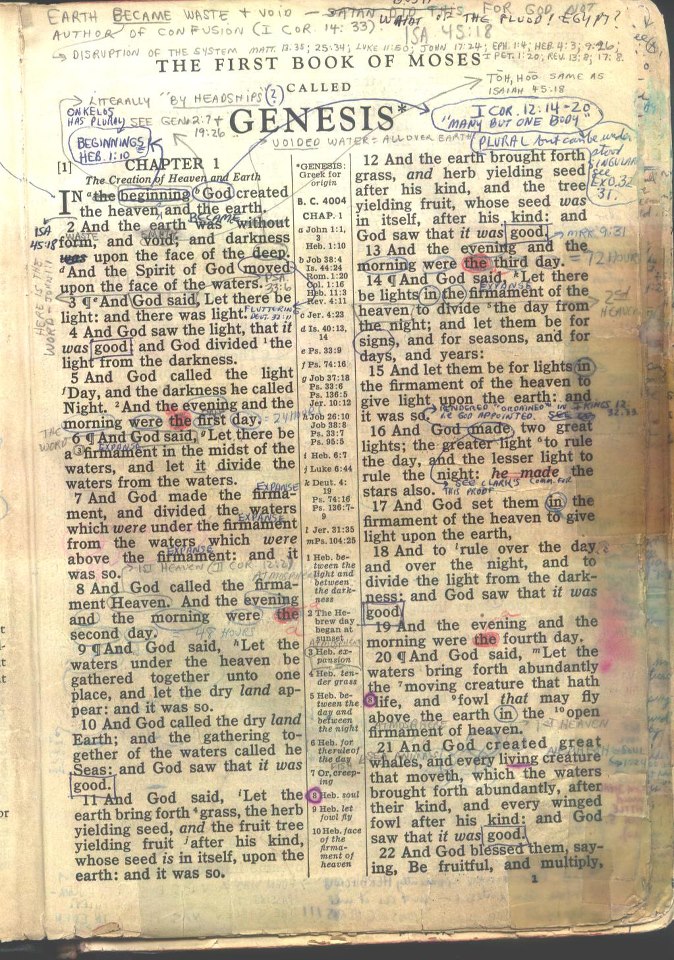 EARTH BECAME WASTE & VOID — SATAN DID THIS, FOR GOD NOT
AUTHOR OF CONFUSION (I COR. 14:33)
WHAT OF THE FLOOD! EGYPT?
ISA 45:18
DISRUPTION OF THE SYSTEM MATT. 13:35; 25:34; LUKE 11:50; JOHN 17:24; EPH. 1:4; HEB. 4:3; 9:26;
I PET. 1:20; REV. 13:8; 17:8.
THE FIRST BOOK OF MOSES
CALLED
GENESIS*
LITERALLY "BY HEADSHIPS" (?)
TOH, HOO SAME AS
ISAIAH 45:18
ONKELOS
HAS PLURAL
SEE GEN. 2:7 &
19:26
BEGINNINGS
HEB. 1:10
I COR. 12:14-20
"MANY BUT ONE BODY"
VOIDED WATER = ALL OVER EARTH
PLURAL but can be under
stood
SINGULAR
see
EXO. 32
31.
[1] CHAPTER 1
The Creation of Heaven and Earth
IN the beginning God created
the heaven and the earth.
BECAME
2 And the earth was without
WASTE
form, and void; and darkness
was upon the face of the deep.
And the Spirit of God moved
upon the face of the waters.
ISA
45:18
PSA
33:6
3 ¶ And God said, Let there be
light: and there was light.
FLUTTERING
DEUT. 32:11
HERE IS THE
WORD - JOHN 1:1
4 And God saw the light, that it
was good: and God divided the
light from the darkness.
5 And God called the light
Day, and the darkness he called
Night. And the evening and the
morning were the first day.
= 24 HOURS
6 ¶ And God said, Let there be
THE
WORD
EXPANSE
a firmament in the midst of the
waters, and let it divide the
waters from the waters.
EXPANSE
7 And God made the firma-
ment, and divided the waters
which were under the firmament
EXPANSE
from the waters which were
EXPANSE
above the firmament: and it
was so.
1ST HEAVEN (II COR. 12:2)
ATMOSPHERE
8 And God called the firma-
ment Heaven. And the evening
and the morning were the
second day.
48 HOURS
9 ¶ And God said, Let the
waters under the heaven be
gathered together unto one
place, and let the dry land ap-
pear: and it was so.
10 And God called the dry land
Earth; and the gathering to-
gether of the waters called he
Seas: and God saw that it was
good.
11 And God said, Let the
earth bring forth grass, the herb
yielding seed, and the fruit tree
yielding fruit after his kind,
whose seed is in itself, upon the
earth: and it was so.
*GENESIS:
Greek for
origin
B. C. 4004
CHAP. 1
a John 1:1,
3
Heb. 1:10
b Job 38:4
Is. 44:24
Rom. 1:20
Col. 1:16
Heb. 11:3
Rev. 4:11
c Jer. 4:23
d Is. 40:13,
14
e Ps. 33:9
f Ps. 74:16
g Job 37:18
Ps. 33:6
Ps. 136:5
Jer. 10:12
h Job 26:10
Job 38:8
Ps. 33:7
Ps. 95:5
i Heb. 6:7
j Luke 6:44
k Deut. 4:
19
Ps. 74:16
Ps. 136:7-
9
l Jer. 31:35
m Ps. 104:25
1 Heb. be-
tween the
light and
between
the dark-
ness
2 The He-
brew day
began at
sunset
3 Heb. ex-
pansion
4 Heb. ten-
der grass
5 Heb. be-
tween the
day and
between
the night
6 Heb. for
the rule of
the day
7 Or, creep-
ing
8 Heb. soul
9 Heb. let
fowl fly
10 Heb. face
of the
firma-
ment of
heaven
12 And the earth brought forth
grass, and herb yielding seed
after his kind, and the tree
yielding fruit, whose seed was
in itself, after his kind: and
God saw that it was good.
MRK 9:31
13 And the evening and the
morning were the third day.
= 72 HOUR
14 ¶ And God said, Let there
EXPANSE
be lights in the firmament of the
heaven to divide the day from
the night; and let them be for
signs, and for seasons, and for
days, and years:
2nd
HEAVEN
15 And let them be for lights in
the firmament of the heaven to
give light upon the earth: and
it was so.
RENDERED "ORDAINED" IN I KINGS 12
HE GOD APPOINTED. SEE 32:33
16 And God made two great
lights; the greater light to rule
the day, and the lesser light to
rule the night: he made the
stars also.
SEE CLARK'S COMM. FOR
THIS PROOF
17 And God set them in the
firmament of the heaven to give
light upon the earth,
18 And to rule over the day
and over the night, and to
divide the light from the dark-
ness: and God saw that it was
good.
19 And the evening and the
morning were the fourth day.
20 ¶ And God said, Let the
waters bring forth abundantly
the moving creature that hath
life, and fowl that may fly
above the earth in the open
firmament of heaven.
1ST HEAVEN
21 And God created great
whales, and every living creature
that moveth, which the waters
brought forth abundantly, after
their kind, and every winged
fowl after his kind: and God
saw that it was good.
22 And God blessed them, say-
ing, Be fruitful, and multiply,
1